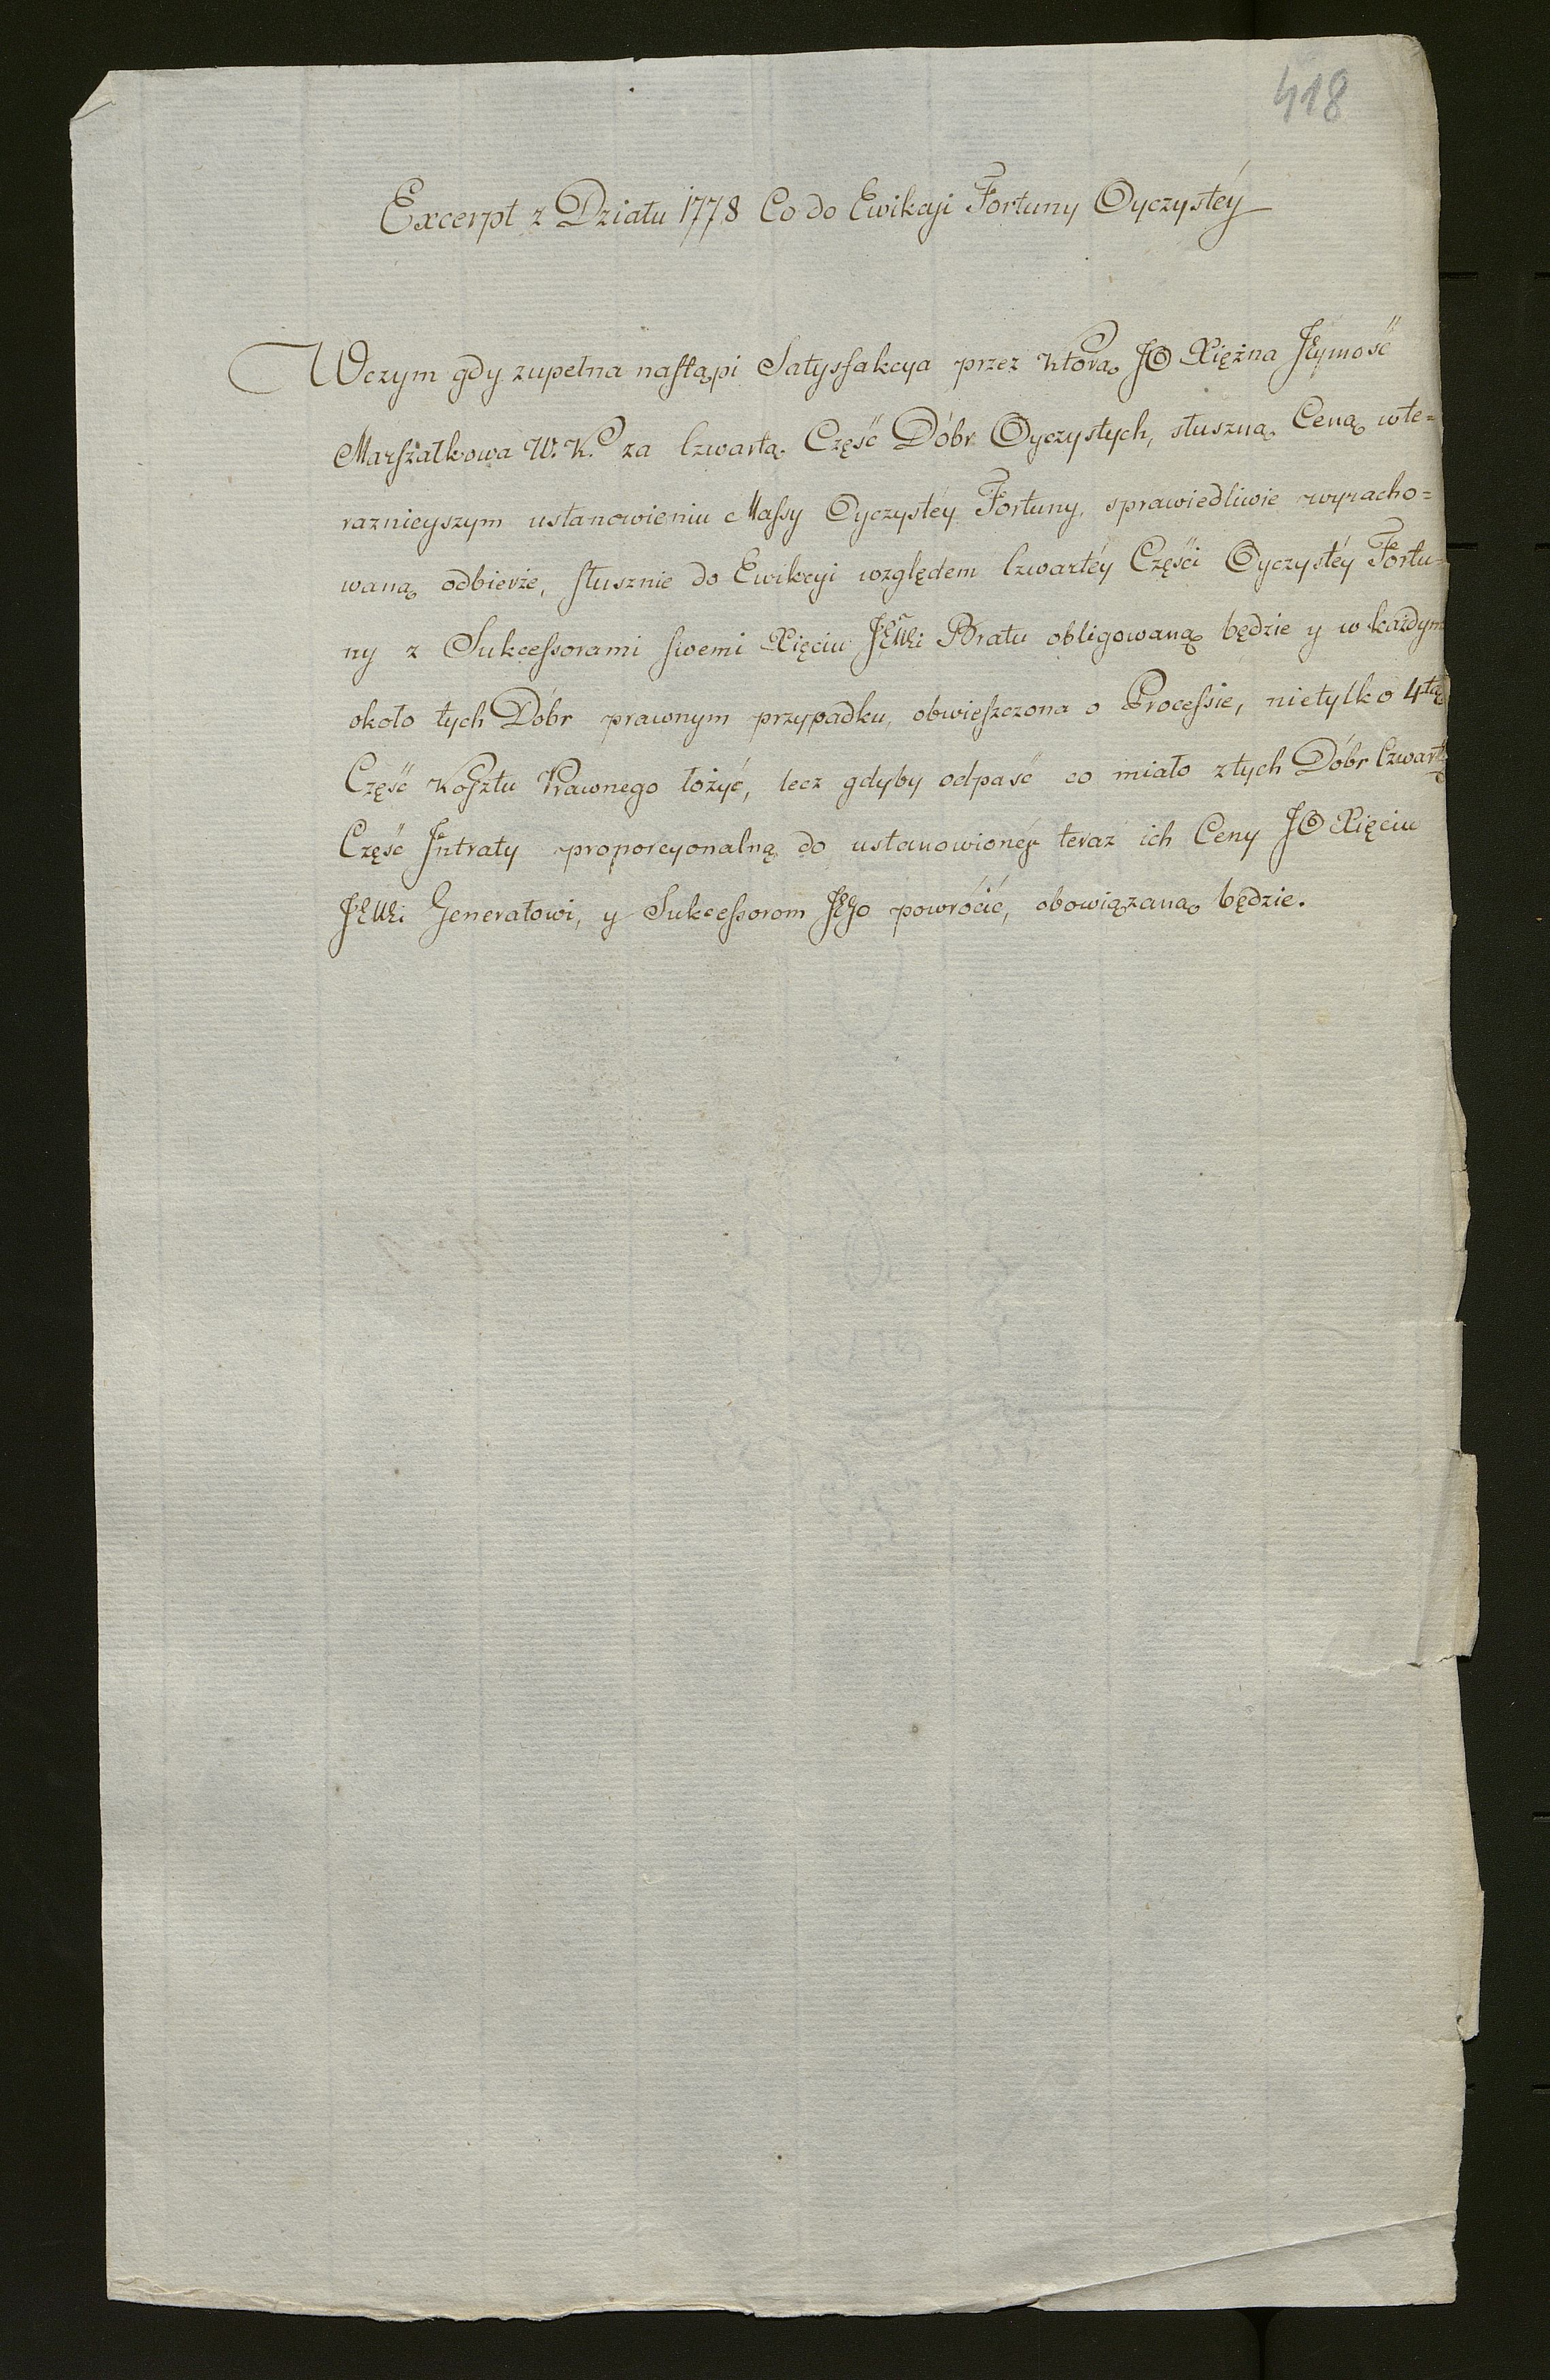 418
Excerpt z Działu 1778 Co do Ewikcyi Fortuny Oyczystéy
Wczym gdy zupełna nastąpi Satysfakcya przez którą JO Xiężna JEymość
Marszałkowa W. K. za Czwartą Część Dóbr Oyczystych, słuszną Ceną wte=
raznieyszym ustanowieniu Massy Oyczystéy Fortuny, sprawiedliwie wyracho=
waną odbierze, słusznie do Ewikcyi względem Czwartéy Części Oyczystéy Fortu=
ny z Sukcessorami swemi Xięciu JEMci Bratu obligowaną będzie y w każdym
około tych Dóbr prawnym przypadku, obwieszczona o Processie, nietylko 4tą
Część Kosztu Prawnego łożyć, lecz gdyby odpaść co miało z tych Dóbr Czwartą
Część Jntraty proporcyonalną do ustanowionéy teraz ich Ceny JO Xięciu
JEMci Generałowi, y Sukcessorom JEgo powrócić, obowiązaną będzie.